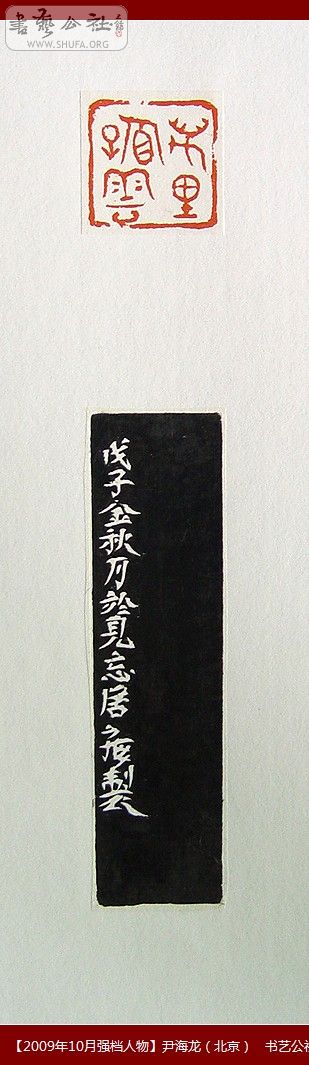 書藝公社
WWW.SHUFA.ORG
戊子金秋月於見忘居製
【2009年10月强档人物】尹海龙（北京） 书艺公社